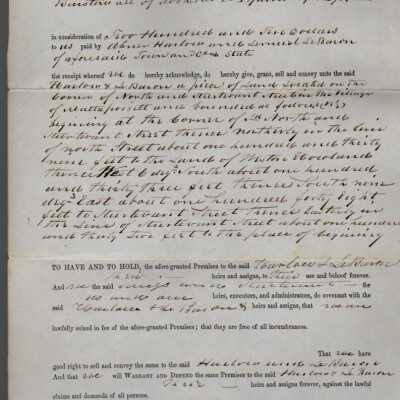 all of
in consideration of Two Hundred and Ten Dollars
to us paid by Abner Harlow and Lemuel LeBaron
of aforesaid Town and State
the receipt whereof we do hereby acknowledge, do hereby give, grant, sell and convey unto the said
Harlow & LeBaron a piece of Land Located on the
Corner of North and Sturtevant Streets in the village
of Mattapoisett and bounded as follows
beginning at the Corner of North and
Sturtevant Street Thence northerly in the line
of North Street about one hundred and thirty
nine feet to the Land of Howland
thence West 6 deg South about one hundred
and thirty three feet, thence South nine
deg East about one hundred forty eight
feet to Sturtevant Street Thence Easterly in
the Line of Sturtevant Street about one hundred
and thirty five feet to the place of beginning
TO HAVE AND TO HOLD, the afore-granted Premises to the said Harlow & LeBaron
their heirs and assigns, to their use and behoof forever.
And we the said for
us and our heirs, executors, and administrators, do covenant with the
said Harlow & Le Baron heirs and assigns, that we are
lawfully seized in fee of the afore-granted Premises; that they are free of all incumbrances.
That we have
good right to sell and convey the same to the said Harlow and Le Baron
And that we will WARRANT AND DEFEND the same Premises to the said Harlow & Le Baron
their heirs and assigns forever, against the lawful
claims and demands of all persons.